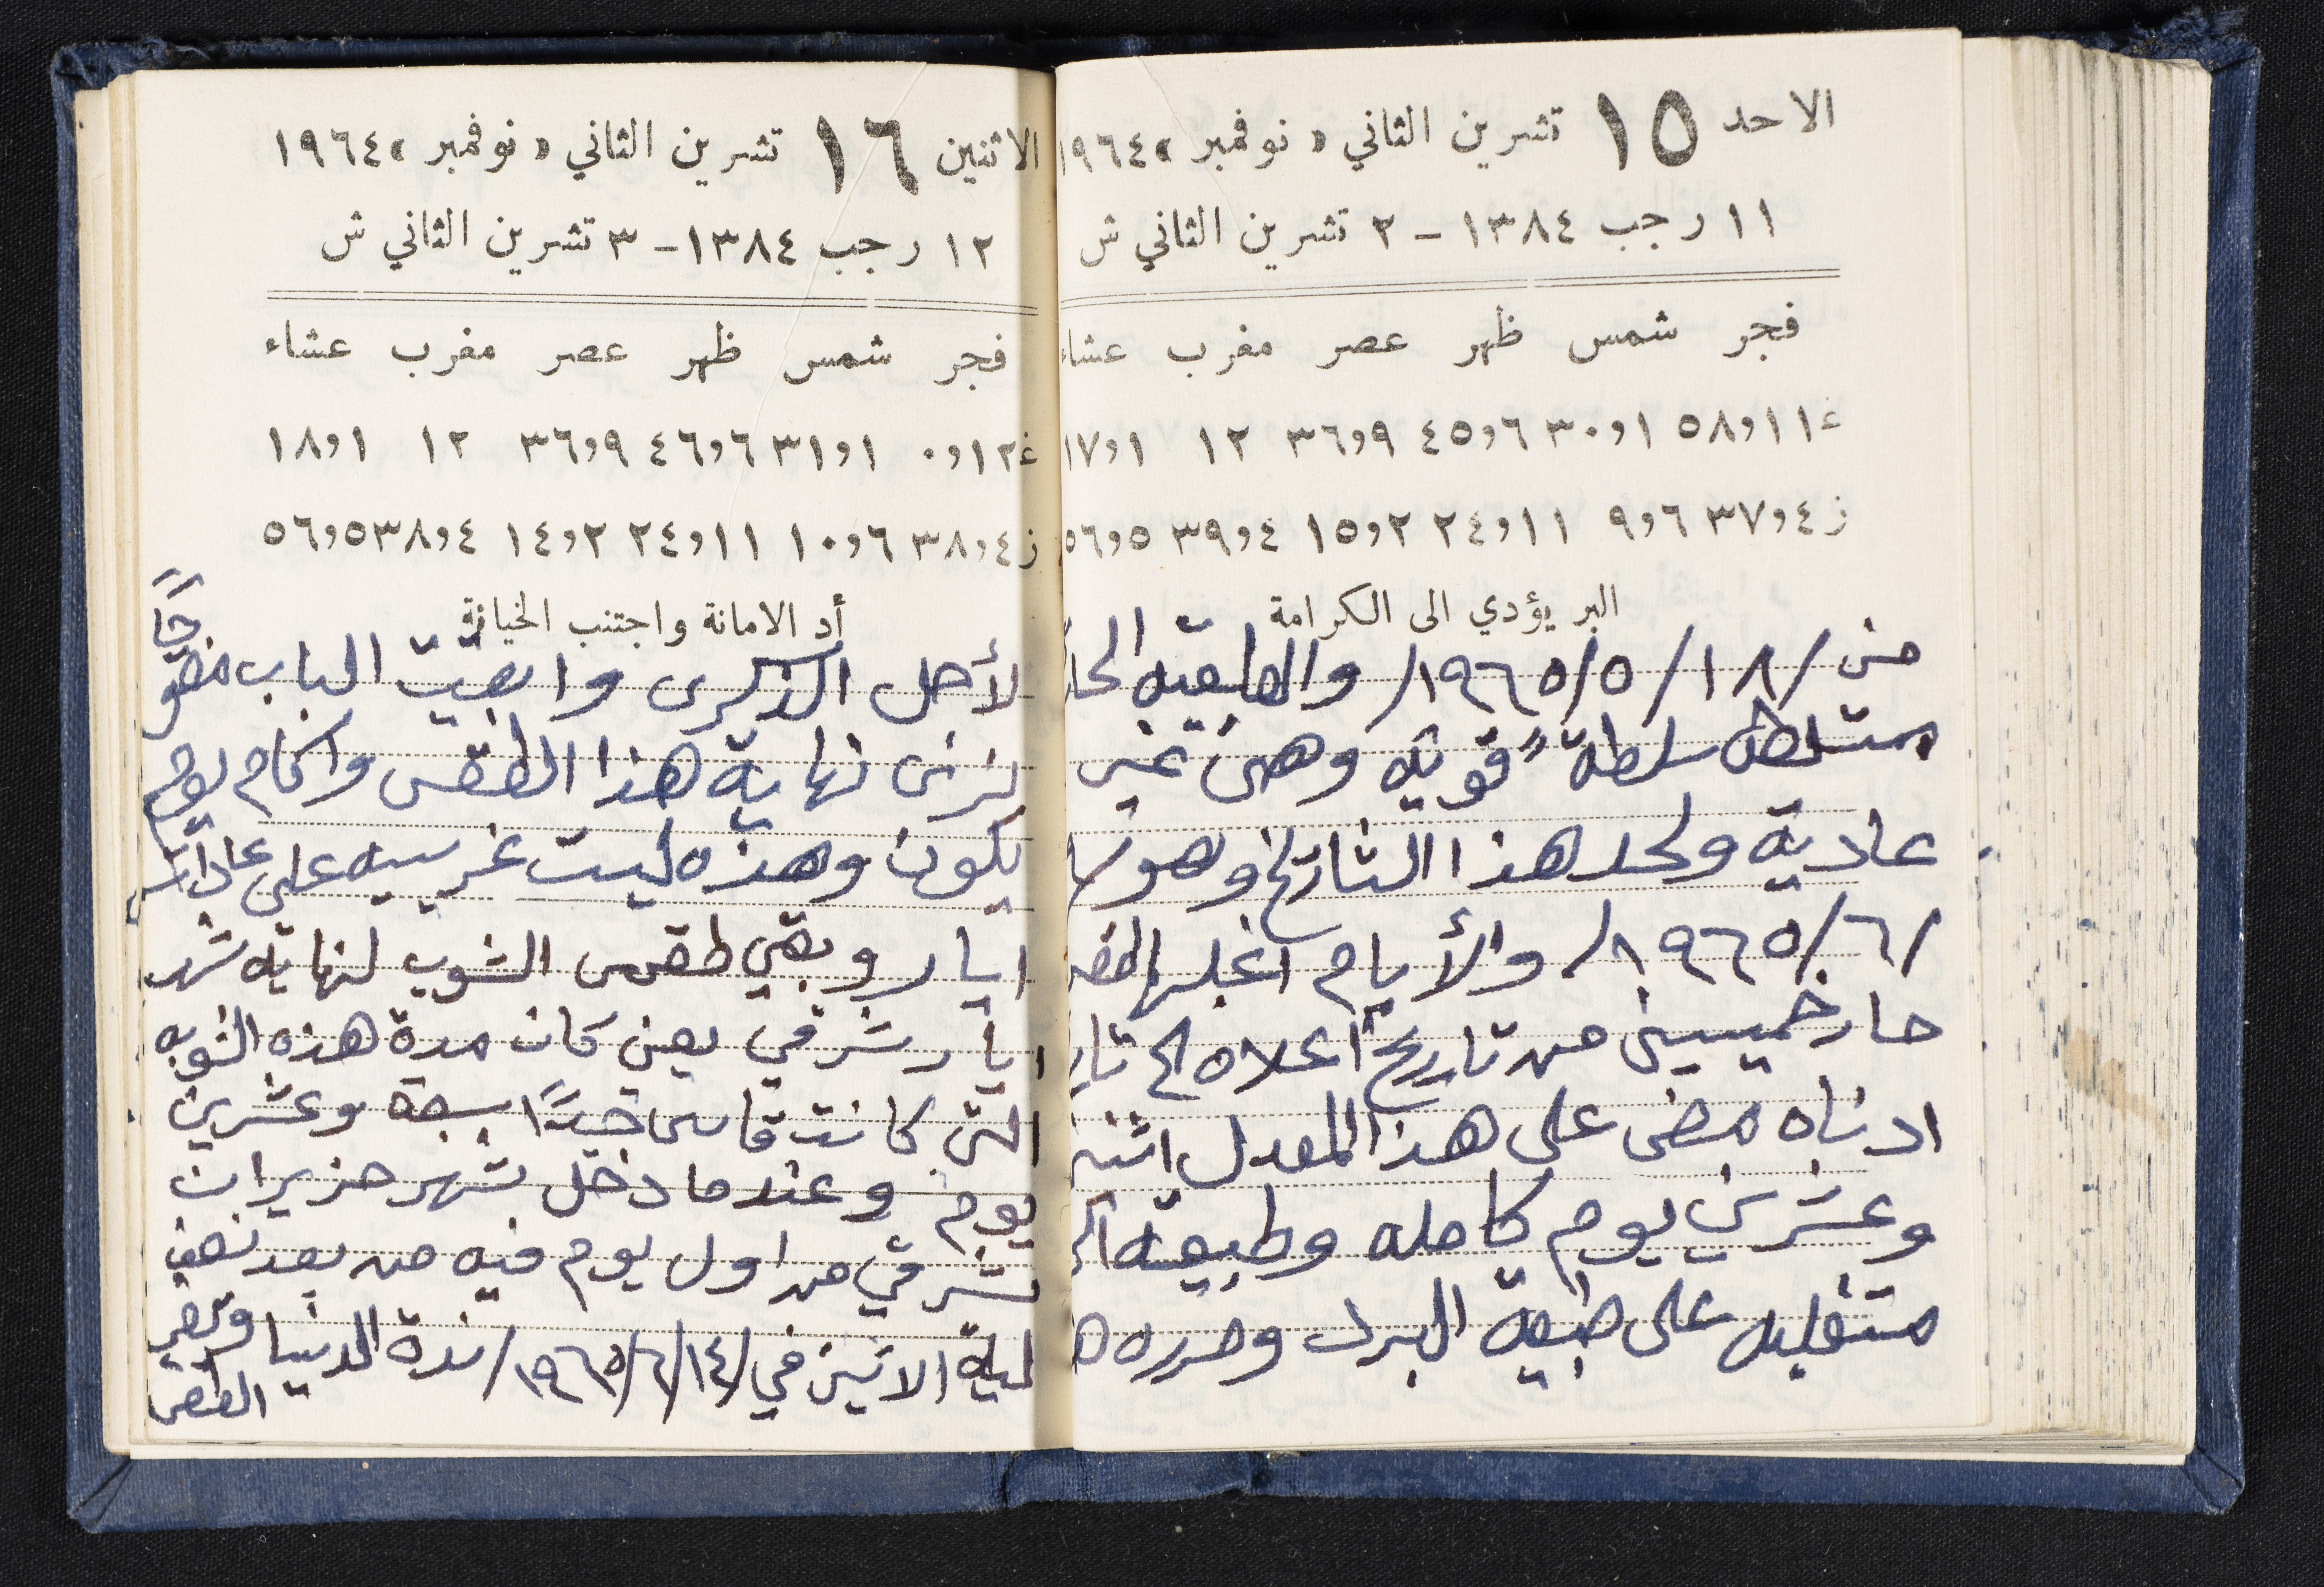 الاحد ١٥ تشرين الثاني « نوفمبر » ١٩٦٤
١١ رجب ١٣٨٤ - ٢ تشرين الثاني ش
فجر شمس ظهر عصر مغرب عشاء
غ ١١و٥٨ ١و٣٠ ٦و٤٥ ٩و٣٦ ١٢ ١و١٧
ز ٤و٣٧ ٦و٩ ١١و٢٤ ٢و١٥ ٤و٣٩ ٥و٥٦
البر يؤدي الى الكرامة
من /١٨/٥/١٩٦٥/ والطبيعه
سلطةً قويه وهي غير
عادية ولحد هذا التاريخ وهو
/٦/١٩٦٥/ والأيام اغلبها
حار خميسيني من تاريخ اعلاه الى
ادناه مضى على هذا المعدل
وعشرين يوم كامله وطبيعة
متغلبه على طبيعة البرد
الاثنين ١٦ تشرين الثاني « نوفمبر » ١٩٦٤
١٢ رجب ١٣٨٤ - ٣ تشرين الثاني ش
فجر شمس ظهر عصر مغرب عشاء
غ ١٢و٠ ١و٣١ ٦و٤٦ ٩و٣٦ ١٢ ١و١٨
ز ٤و٣٨ ٦و١٠ ١١و٢٤ ٢و١٤ ٤و٣٨ ٥و٥٦
أد الامانة واجتنب الخيانة
لأجل الذكرى وابقيت الباب مفتوحاً
لنرى نهاية هذا الطقس واكام يوم
يكون وهذه ليست غريبه على عادات
ايار وبقي طقس الشوب لنهاية شهر
ايار شرقي يعني كانت مدة هذه الشوبه
التي كانت قاسى جيدًا سبعة وعشرين
يوم وعندما دخل شهر حزيران
شرقي من اول يوم فيه من بعد نصف
ليلة الاثنين في /١٤/٦/١٩٦٥/ ندة الدنيا وتغير
الطقس